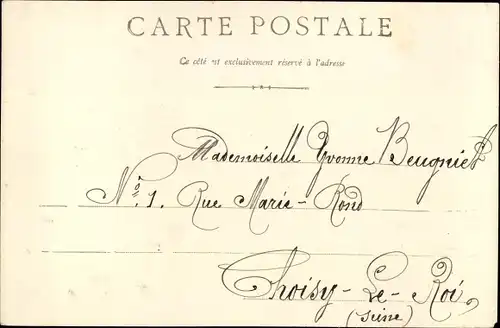 CARTE POSTALE
Ce côté est exclusivement réservé à l'adresse
Mademoiselle Yvonne Beugniet
No. 1. Rue Marie-Rond
Choisy-Le-Roi,
(Seine)